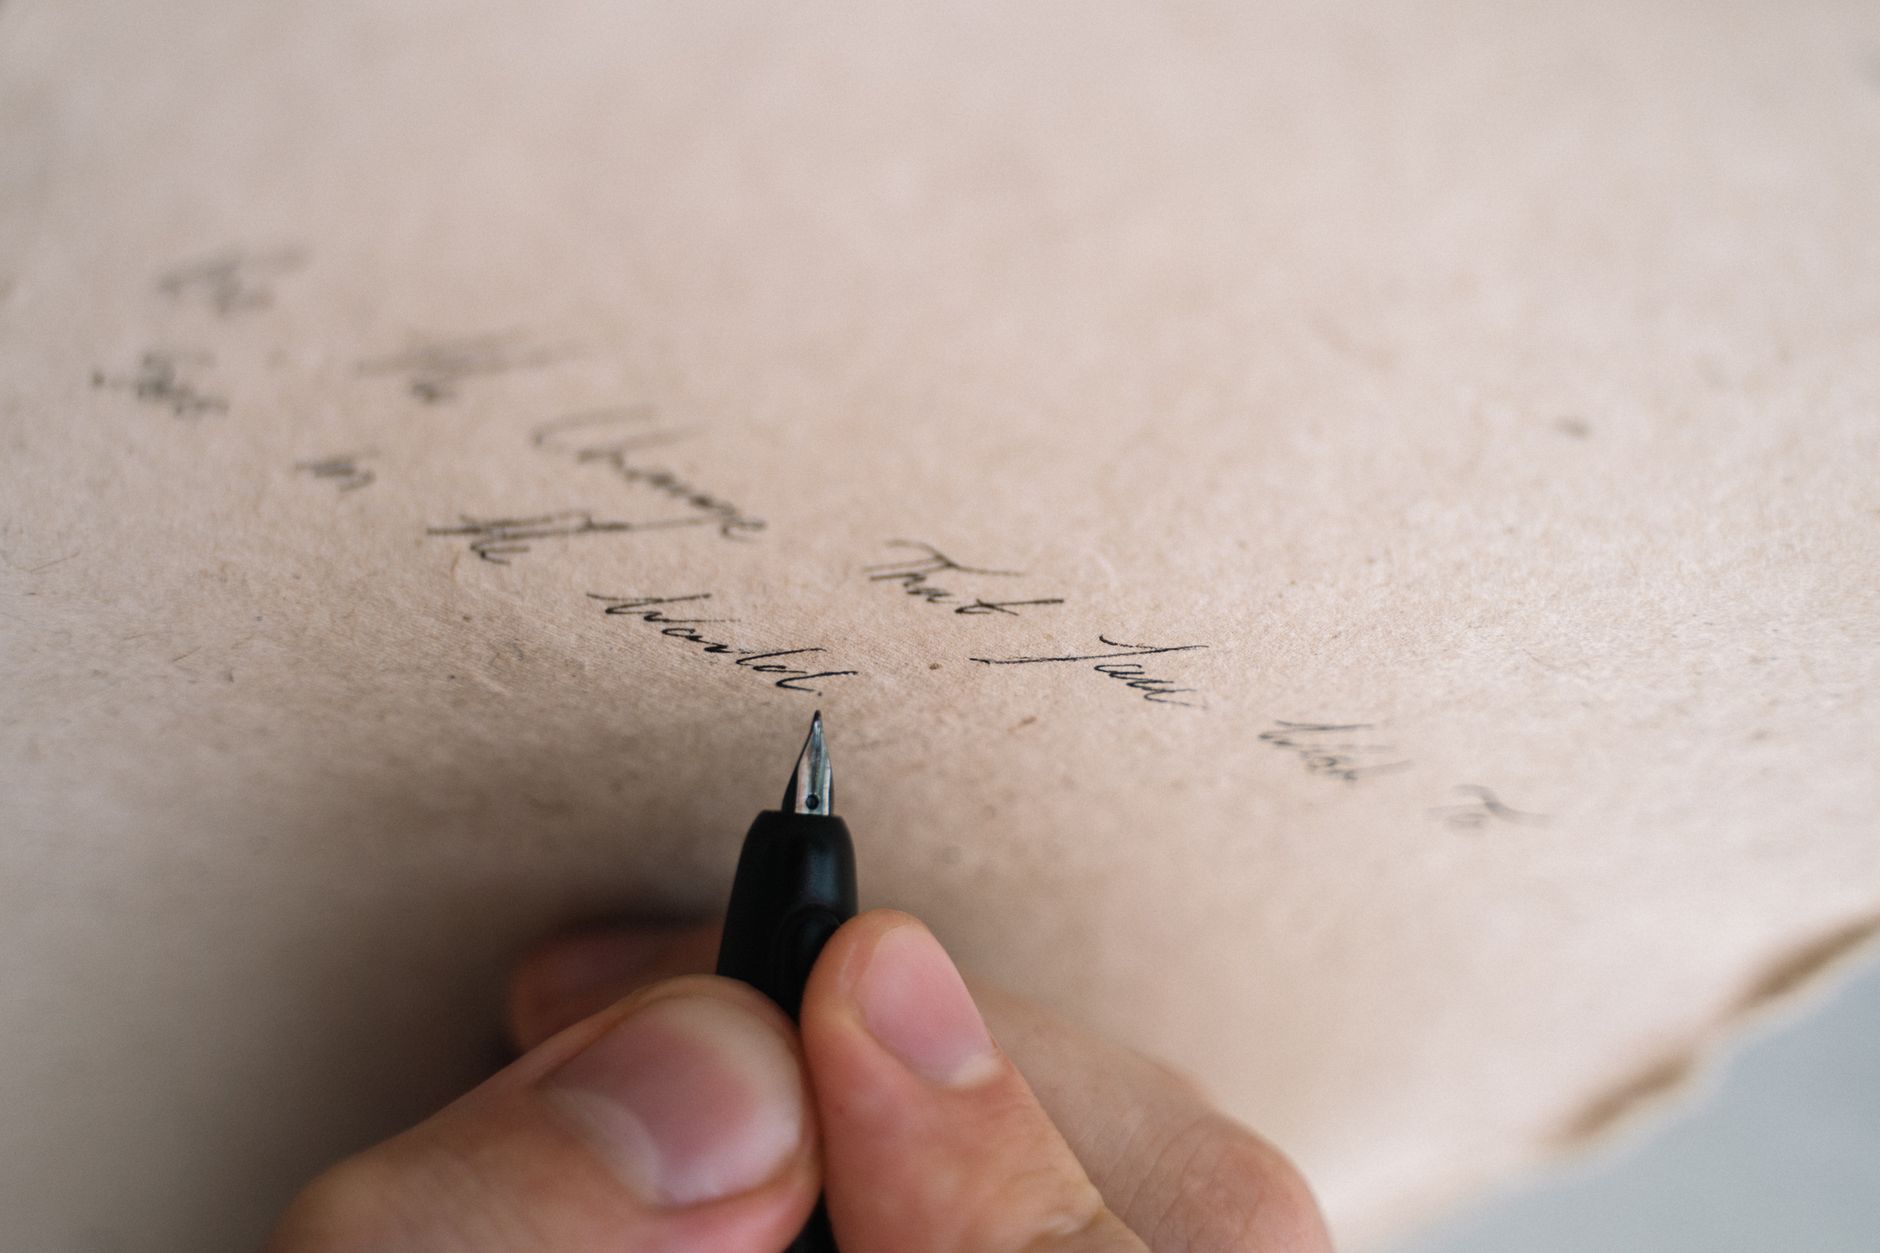 The Change That You Wish To
In The World.